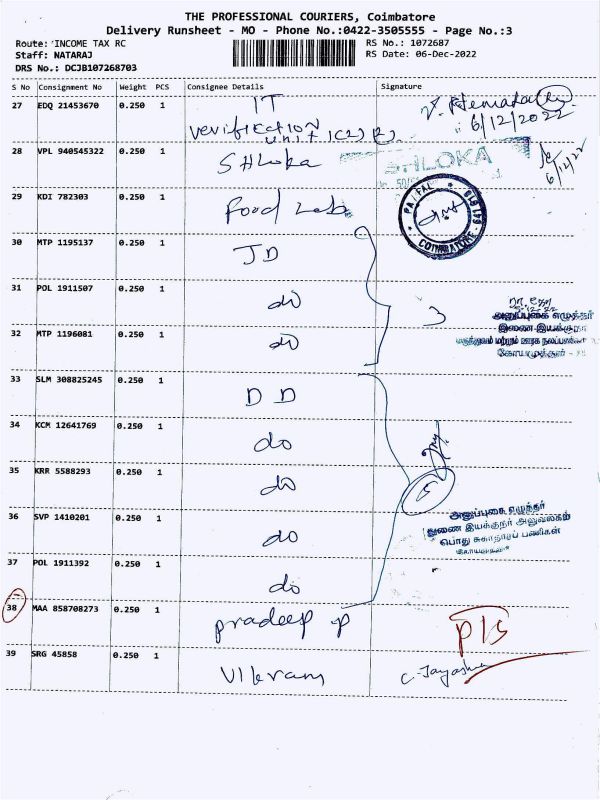 THE PROFESSIONAL COURIERS, Coimbatore
Delivery Runsheet - MO - Phone No.:0422-3505555 - Page No.:3
Route: INCOME TAX RC
RS No.: 1072687
Staff: NATARAJ
RS Date: 06-Dec-2022
DRS No.: DCJB107268703
S No Consignment No Weight PCS Consignee Details Signature
27 EDQ 21453670 0.250 1 IT
verification
unit 1(2)
6/12/2022
28 VPL 940545322 0.250 1 SHloka
SHLOKA
6/12/22
29 KDI 782303 0.250 1 Food Lab
COIMBATORE
30 MTP 1195137 0.250 1 JD
31 POL 1911507 0.250 1 do
3
அனுப்புகை எழுத்தர்
இணை இயக்குநர்
32 MTP 1196081 0.250 1 do
மருத்துவம் மற்றும் ஊரக நலப்பணிகள்
கோயமுத்தூர்
33 SLM 308825245 0.250 1 DD
34 KCM 12641769 0.250 1 do
35 KRR 5588293 0.250 1 do
5
36 SVP 1410201 0.250 1 do
அனுப்புகை எழுத்தர்
துணை இயக்குநர் அலுவலகம்
பொது சுகாதாரப் பணிகள்
37 POL 1911392 0.250 1 do
38 MAA 858708273 0.250 1 pradeep p
39 SRG 45858 0.250 1 Vikram